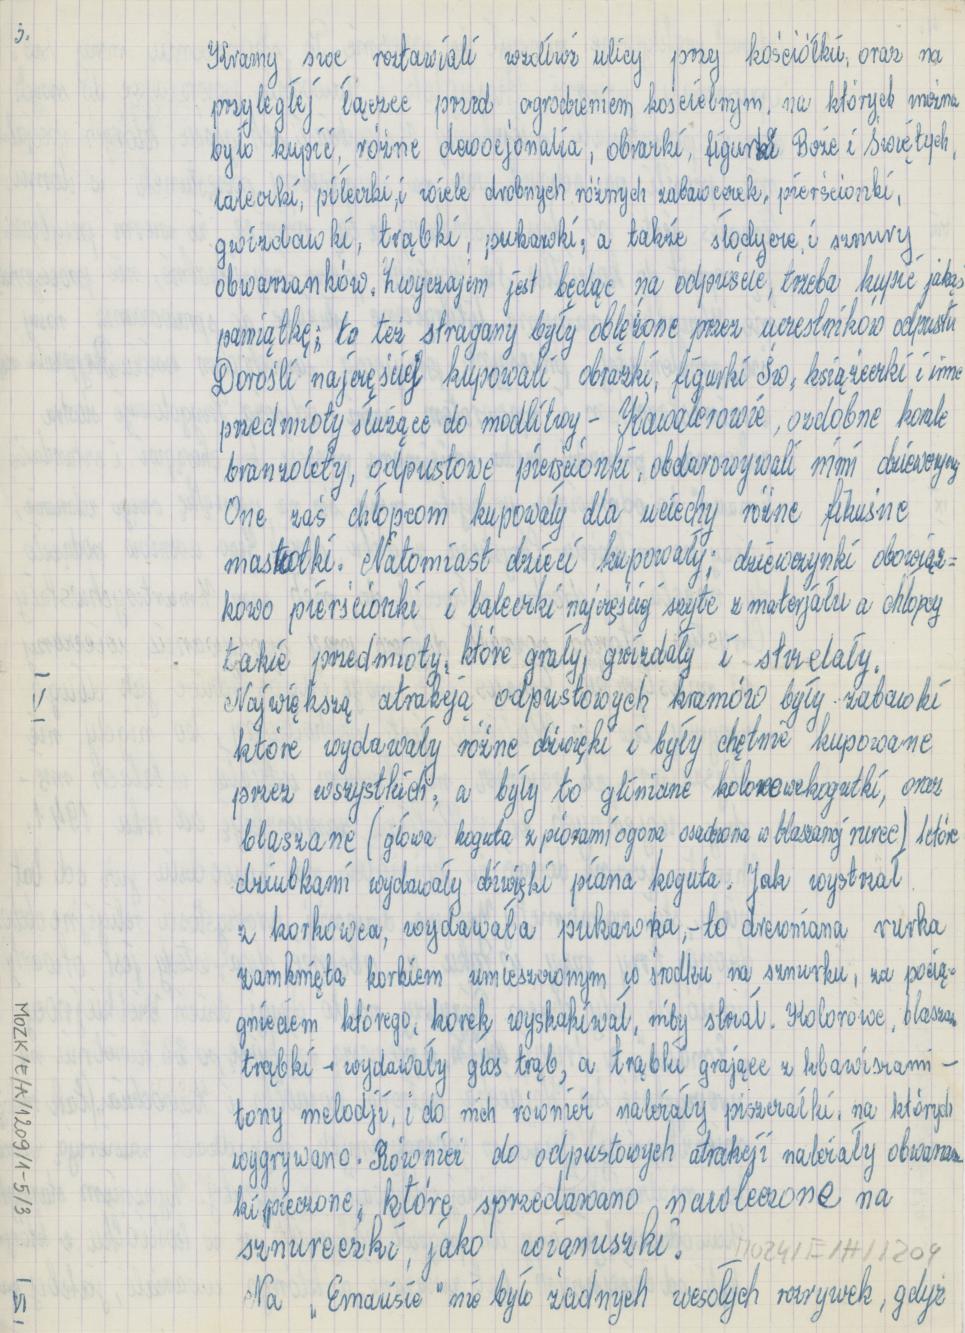 3.
Kramy swe roztawiali wzdłuż ulicy przy kościółku, oraz na
przyległej łączce przed ogrodzeniem kościelnym, na których można
było kupić, różne dewocjonalia, obrazki, figurki Boże i Świętych,
laleczki, piłeczki, i wiele drobnych różnych zabaweczek, pierścionki,
gwizdawki, trąbki, pukawki, a także słodycze i sznury
obwarzanków. Zwyczajem jest będąc na odpuście, trzeba kupić jakąś
pamiątkę; to też stragany były oblężone przez uczestników odpustu
Dorośli najczęściej kupowali obrazki, figurki Św, książeczki i inne
przedmioty służące do modlitwy - Kawalerowie, ozdobne korale
branzolety, odpustowe pierścionki, obdarowywali nimi dziewczyny
One zaś chłopcom kupowały dla uciechy różne fikuśne
maskotki. Natomiast dzieci kupowały; dziewczynki obowiąz=
kowo pierścionki i laleczki najczęściej szyte z materjału a chłopcy
takie przedmioty, które grały, gwizdały i strzelały.
Największą atrakcją odpustowych kramów były zabawki
które wydawały różne dźwięki i były chętnie kupowane
przez wszystkich, a były to gliniane kolorowe kogutki, oraz
blaszane (głowa koguta z piórami ogona osadzona w blaszanej rurce) które
dziubkami wydawały dźwięki piania koguta. Jak wystrzał
z korkowca, wydawała pukawka, - to drewniana rurka
zamknięta korkiem umieszczonym w środku na sznurku, za pocią-
gnięciem którego, korek wyskakiwał, niby strzał. Kolorowe, blaszane
trąbki - wydawały głos trąb, a trąbki grające z klawiszami -
tony melodji, i do nich również należały piszczałki, na których
wygrywano. Również do odpustowych atrakcji należały obwarzan
ki pieczone, które sprzedawano nawleczone na
sznureczki, jako wianuszki.
Na „Emausie" nie było żadnych wesołych rozrywek, gdyż
MOZK/E/A/1209/1-5/3